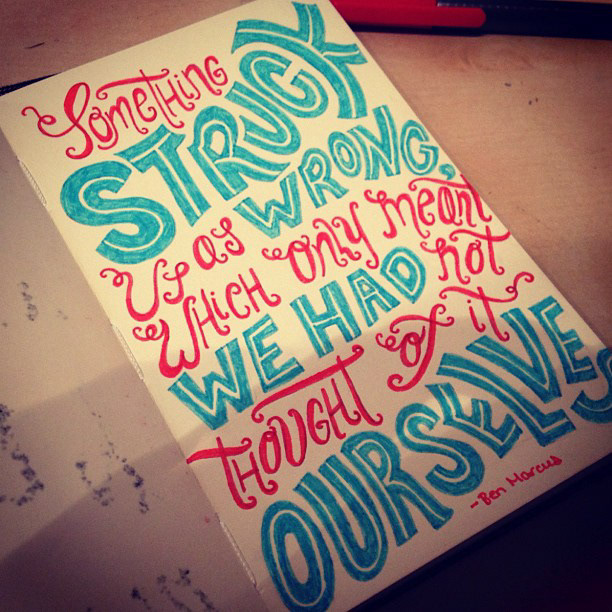 Something
STRUCK
US as WRONG,
WHICH only meant
WE HAD not
THOUGHT of it
OURSELVES
- Ben Marcus